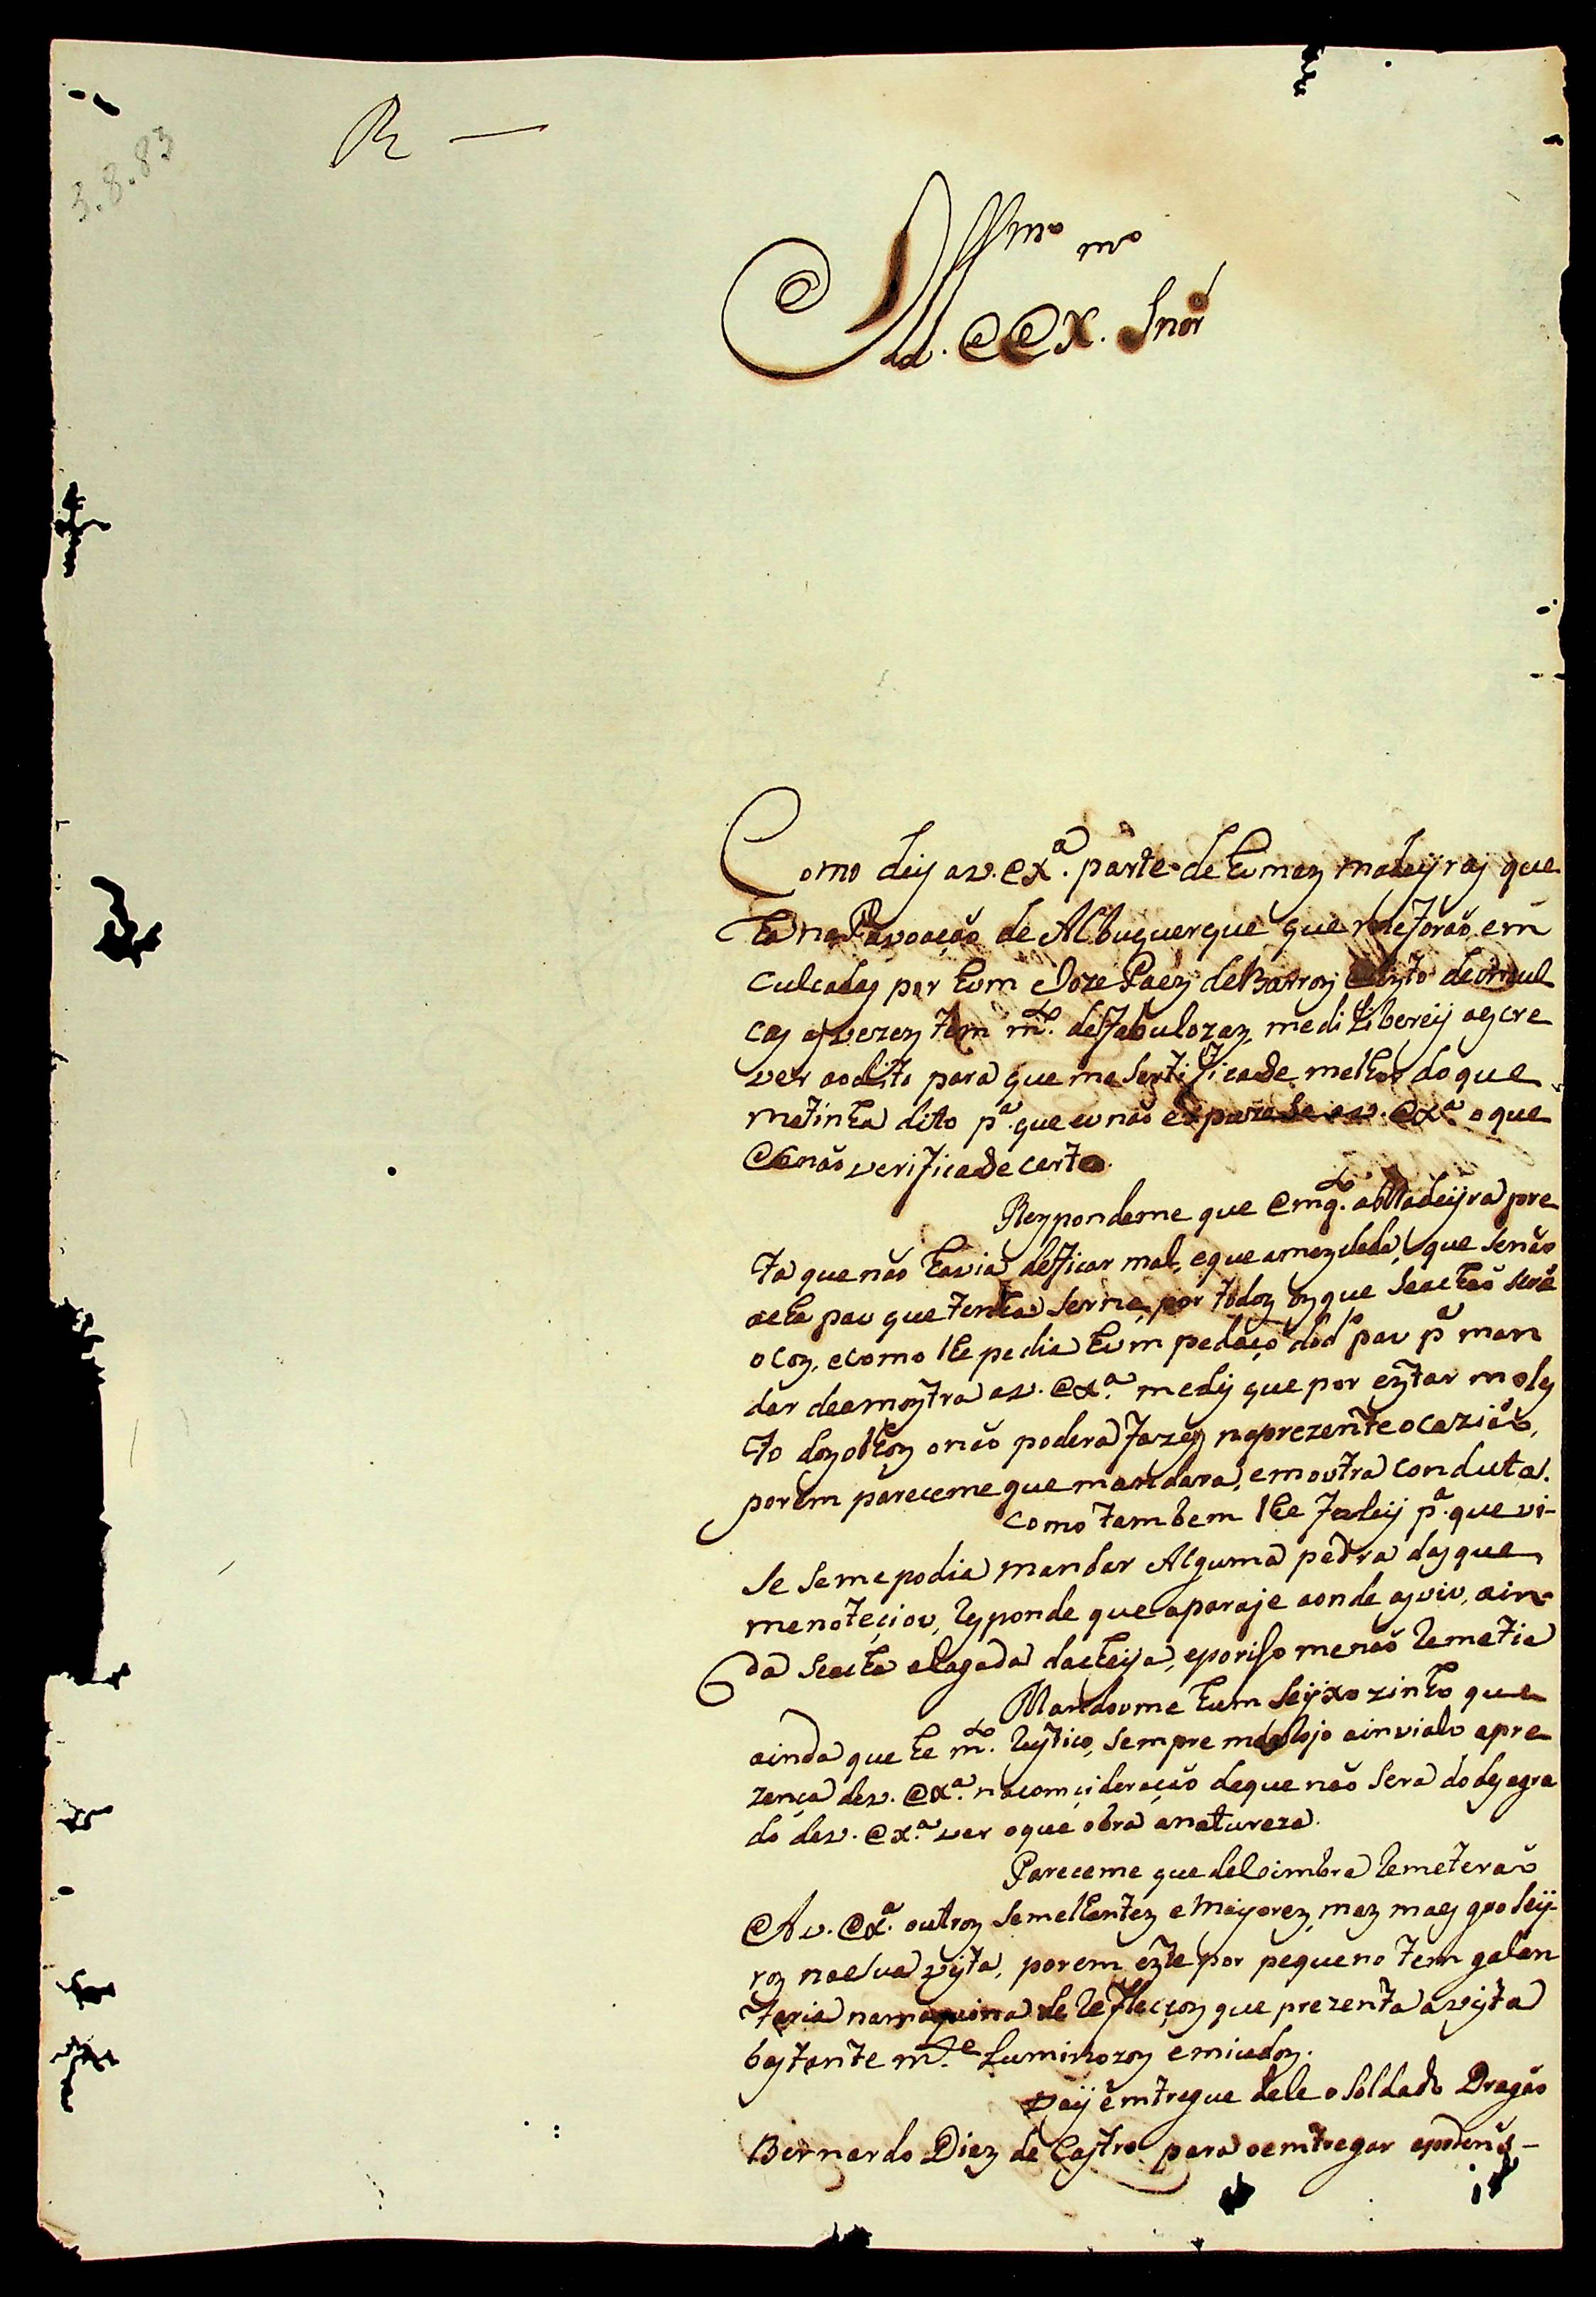 R —
3.8.83
Ill.mo e Ex.mo Snor
Como deij a v. ex.a parte de humaz madeijras que
ha na Pavoação de Albuquerque que me forão em
culcadas por hum Joze Paez de Barroz e isto de
cas as vezez tem m.to de fabulozaz, me dilibereij aescre
ver ao dito para que me sertificade melhor do que
me tinha dito p.a que eu não espuzese a v. ex.a o que
não verificade certo.
Rezpondeme que emq.to a Madeijra pre
ta que não havia de ficar mal, e que amezclada, que se não
acha pau que tenha serne, por todoz oz que se achão serẽ
ocoz, e como lhe pedia hum pedaço do d.to pau p.a man
dar de amoztra a v. ex.a me diz que por eztar moles
to doz olhoz o não podera fazer na prezente ocazião,
porem pareceme que mandara, em outra conduta.
Como tambem lhe faleij p.a que vi-
se se me podia mandar Alguma pedra das que
me noteciou, responde que a paraje aonde as viu, ain-
da se acha alagada da cheija, e por iso me não remetia
Mandoume hum seijxozinho que
ainda que he m.to rustico, sempre me alojo ainvialo apre
zença de v. ex.a na comcideração de que não sera do desagra
do de v. ex.a ver o que obra a natureza.
Pareceme que de Coimbra remeterão
A v. ex.a outroz semelhantez e mayorez, maz mais groseij-
roz na sua vista, porem ezte por pequeno tem galan
taria na maquina de reflecçoz que prezenta a vista
bastante m.te Luminozoz e miudoz.
Vaij emtregue dele o soldado Dragão
Bernardo Diez de Castro para o emtregar